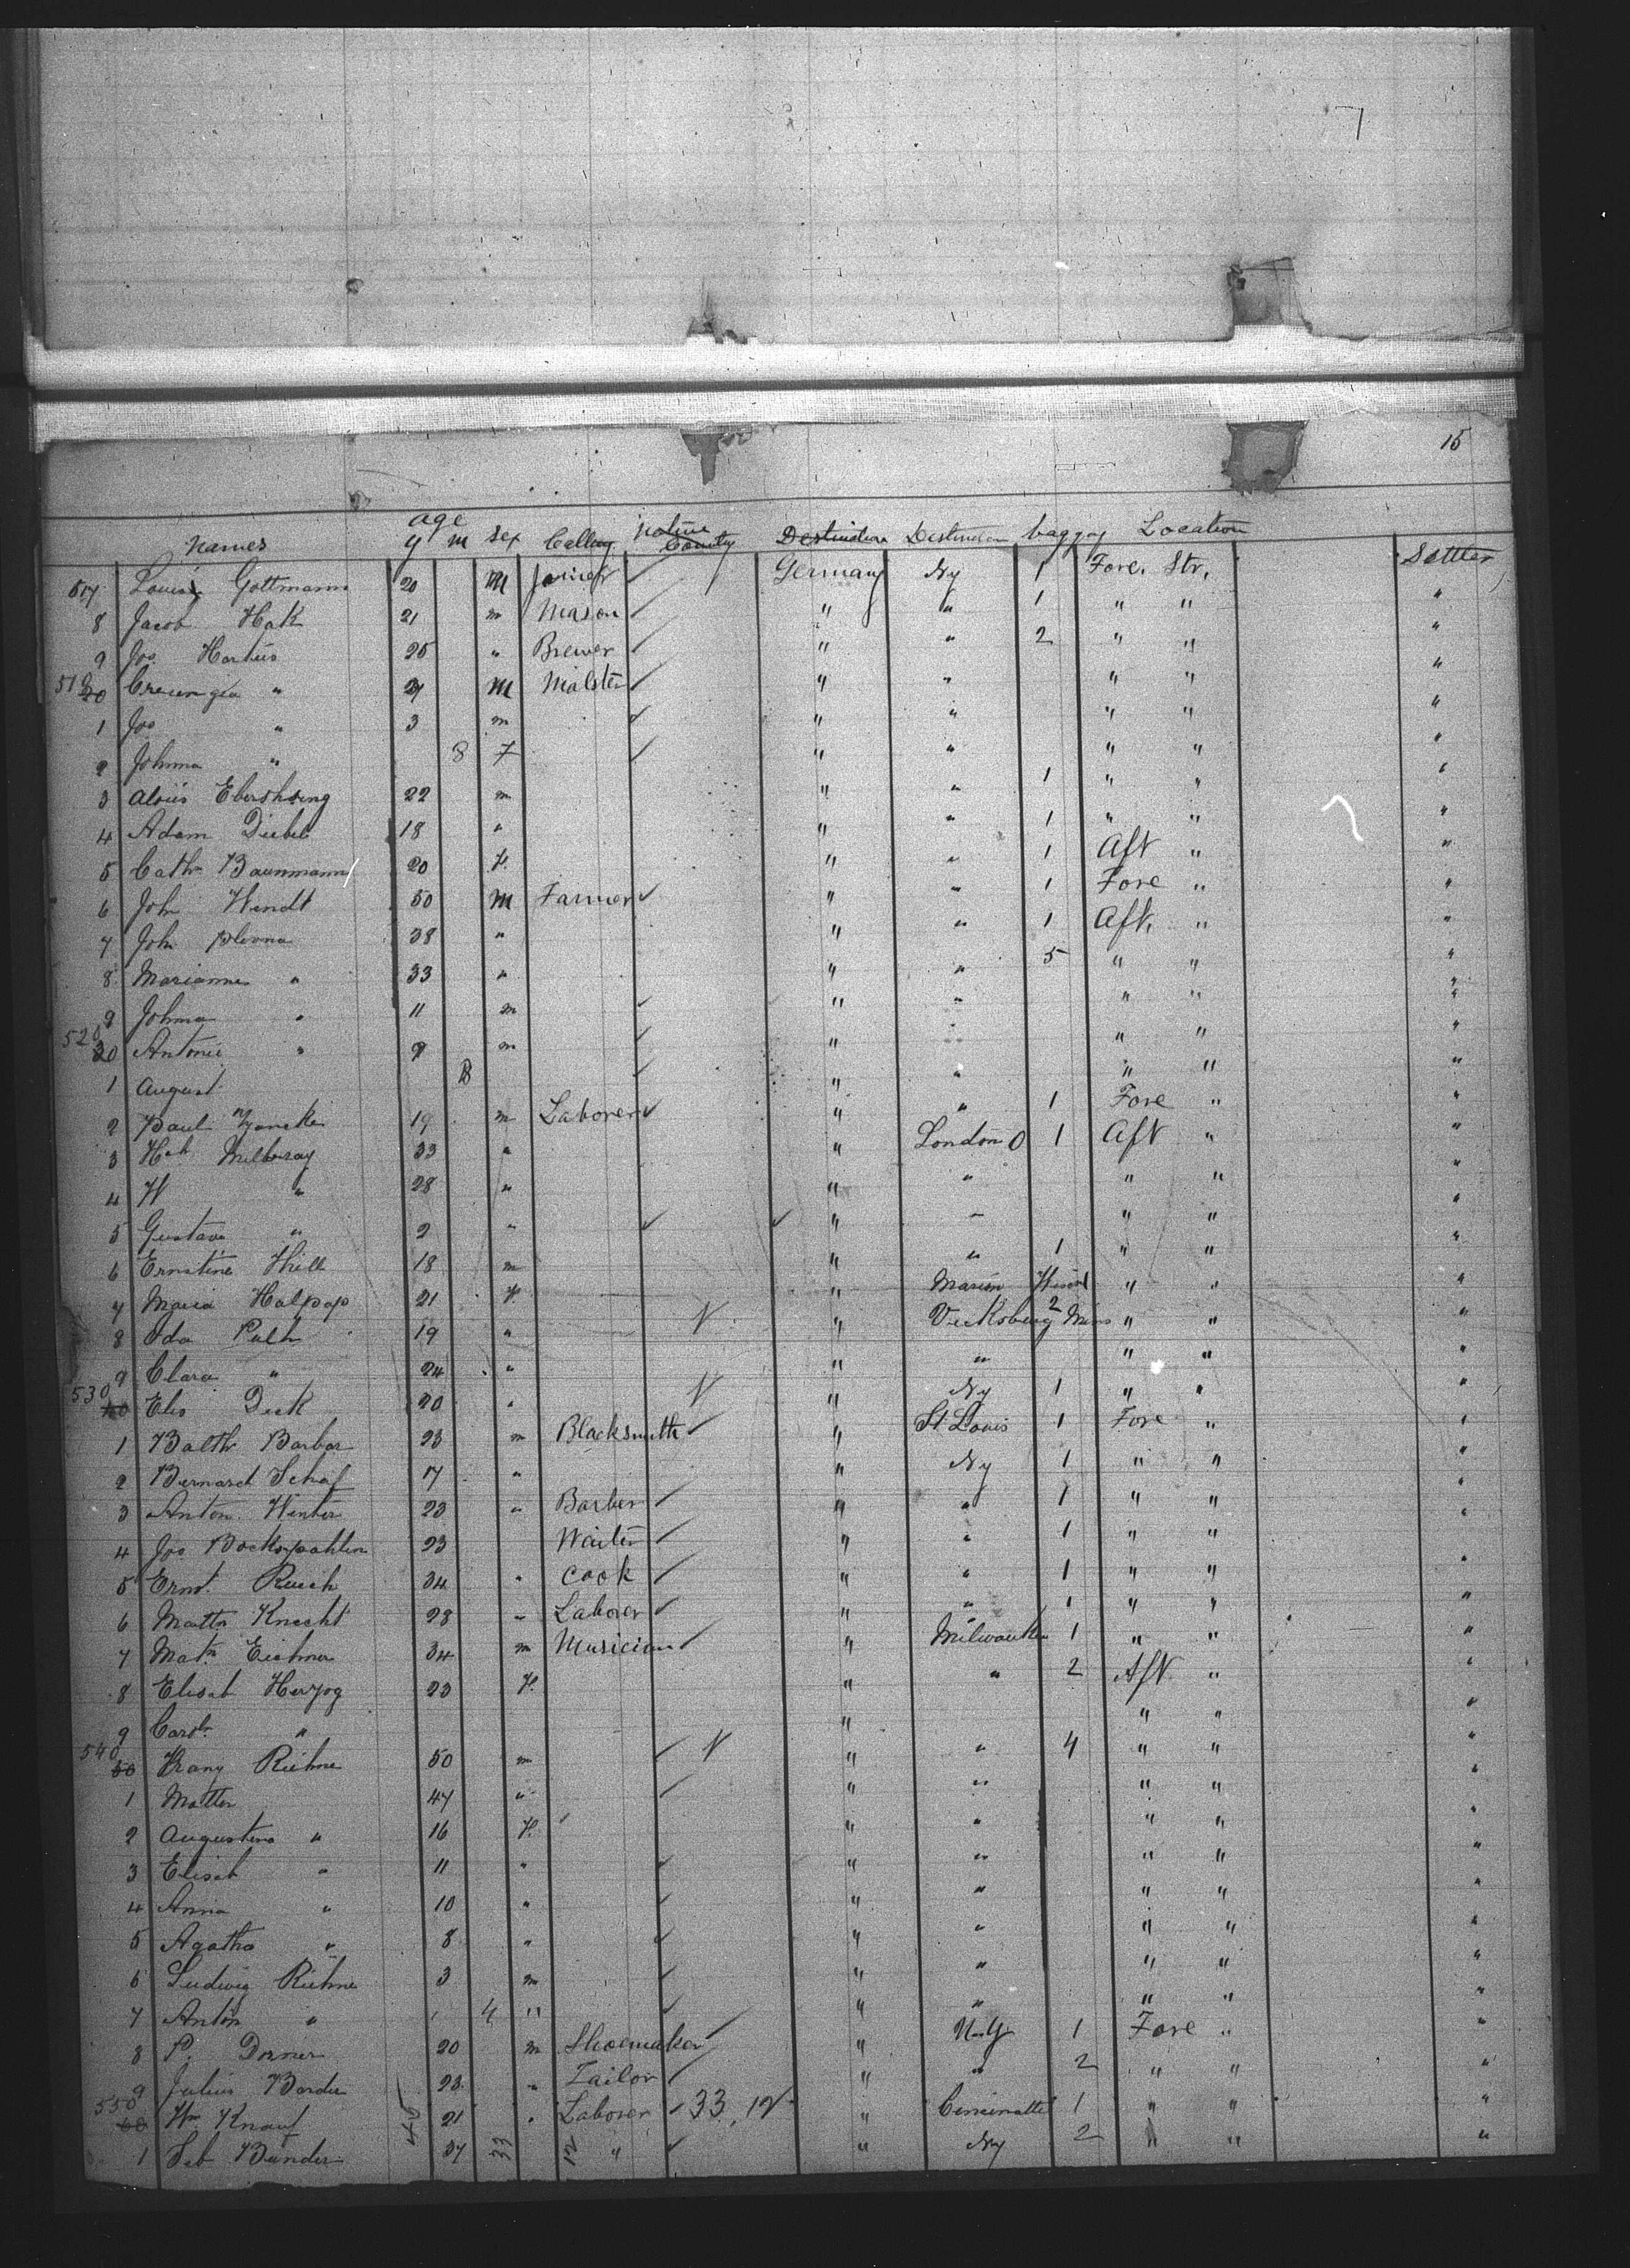 7
15
age
Names y m Sex Calling Native Country Destination Destination baggag Location Settler
517 Louis Gottmann 20 M Joiner Germany Ny 1 Fore. Str.
8 Jacob Hak 21 m Mason " " 1 " " "
9 Jos. Hartus 25 " Brewer " " 2 " " "
519 20 " M Malster " " " " "
1 Jos " 3 m " " " " "
2 Johnna " 8 7 " " " " "
3 Alois 22 m " " 1 " " "
4 Adam Diebel 18 " " " 1 " " "
5 Cath Baunmann 20 f. " " 1 Aft " "
6 Joh Wendt 50 M Farmer " " 1 Fore " "
7 Joh Plonna 38 " " " 1 Aft. " "
8 Marianne " 33 " " " 5 " " "
9 Johnna " 11 m " " " " "
520 30 Antonie " 9 m " " " " "
1 August " " " " "
2 Paul 19 m Laborer " " 1 Fore " "
3 33 " " London O 1 Aft " "
4 W " 28 " " " " " "
5 Gustav " 2 " " " " " "
6 Ernstine Thiele 18 m " " 1 " " "
7 Maria Halpap 21 f. " Marion " " "
8 Ida Pulh 19 " " Vicksburg 2 Miss " " "
9 Clara " 24 " " " " " "
530 40 Elis Deck 20 " " Ny 1 " " "
1 Balth Barbar 23 m Blacksmith " St Louis 1 Fore " "
2 Bernard Schaf 17 " " Ny 1 " " "
3 Anton Winter 23 " Barber " " 1 " " "
4 Jos 23 Waiter " " 1 " " "
5 Ernst. Rusch 34 " Cook " " 1 " " "
6 Matth Knecht 28 " Laborer " " 1 " " "
7 Math Eichner 34 m Musician " Milwaukee 1 " " "
8 Elisab Herzog 23 f. " " 2 Aft " "
9 Carol " " " " "
540 50 Franz Riehne 50 m " " 4 " " "
1 Matten 47 " " " " " "
2 Augustina " 16 f. " " " " "
3 Elisab " 11 " " " " " "
4 Anna " 10 " " " " " "
5 Agatha " 8 " " " " " "
6 Ludwig Riehne 3 m " " " " "
7 Anton " 4 " " " " " "
8 P. Donner 20 m Shoemaker " N.Y 1 Fore " "
9 Julius Bardu 23. " Tailor " " 2 " " "
550 60 Wm Knauf 21 " Laborer 33, 12 " Cincinatti 1 " " "
1 Seb Bunder 37 33 12 " " Ny 2 " " "